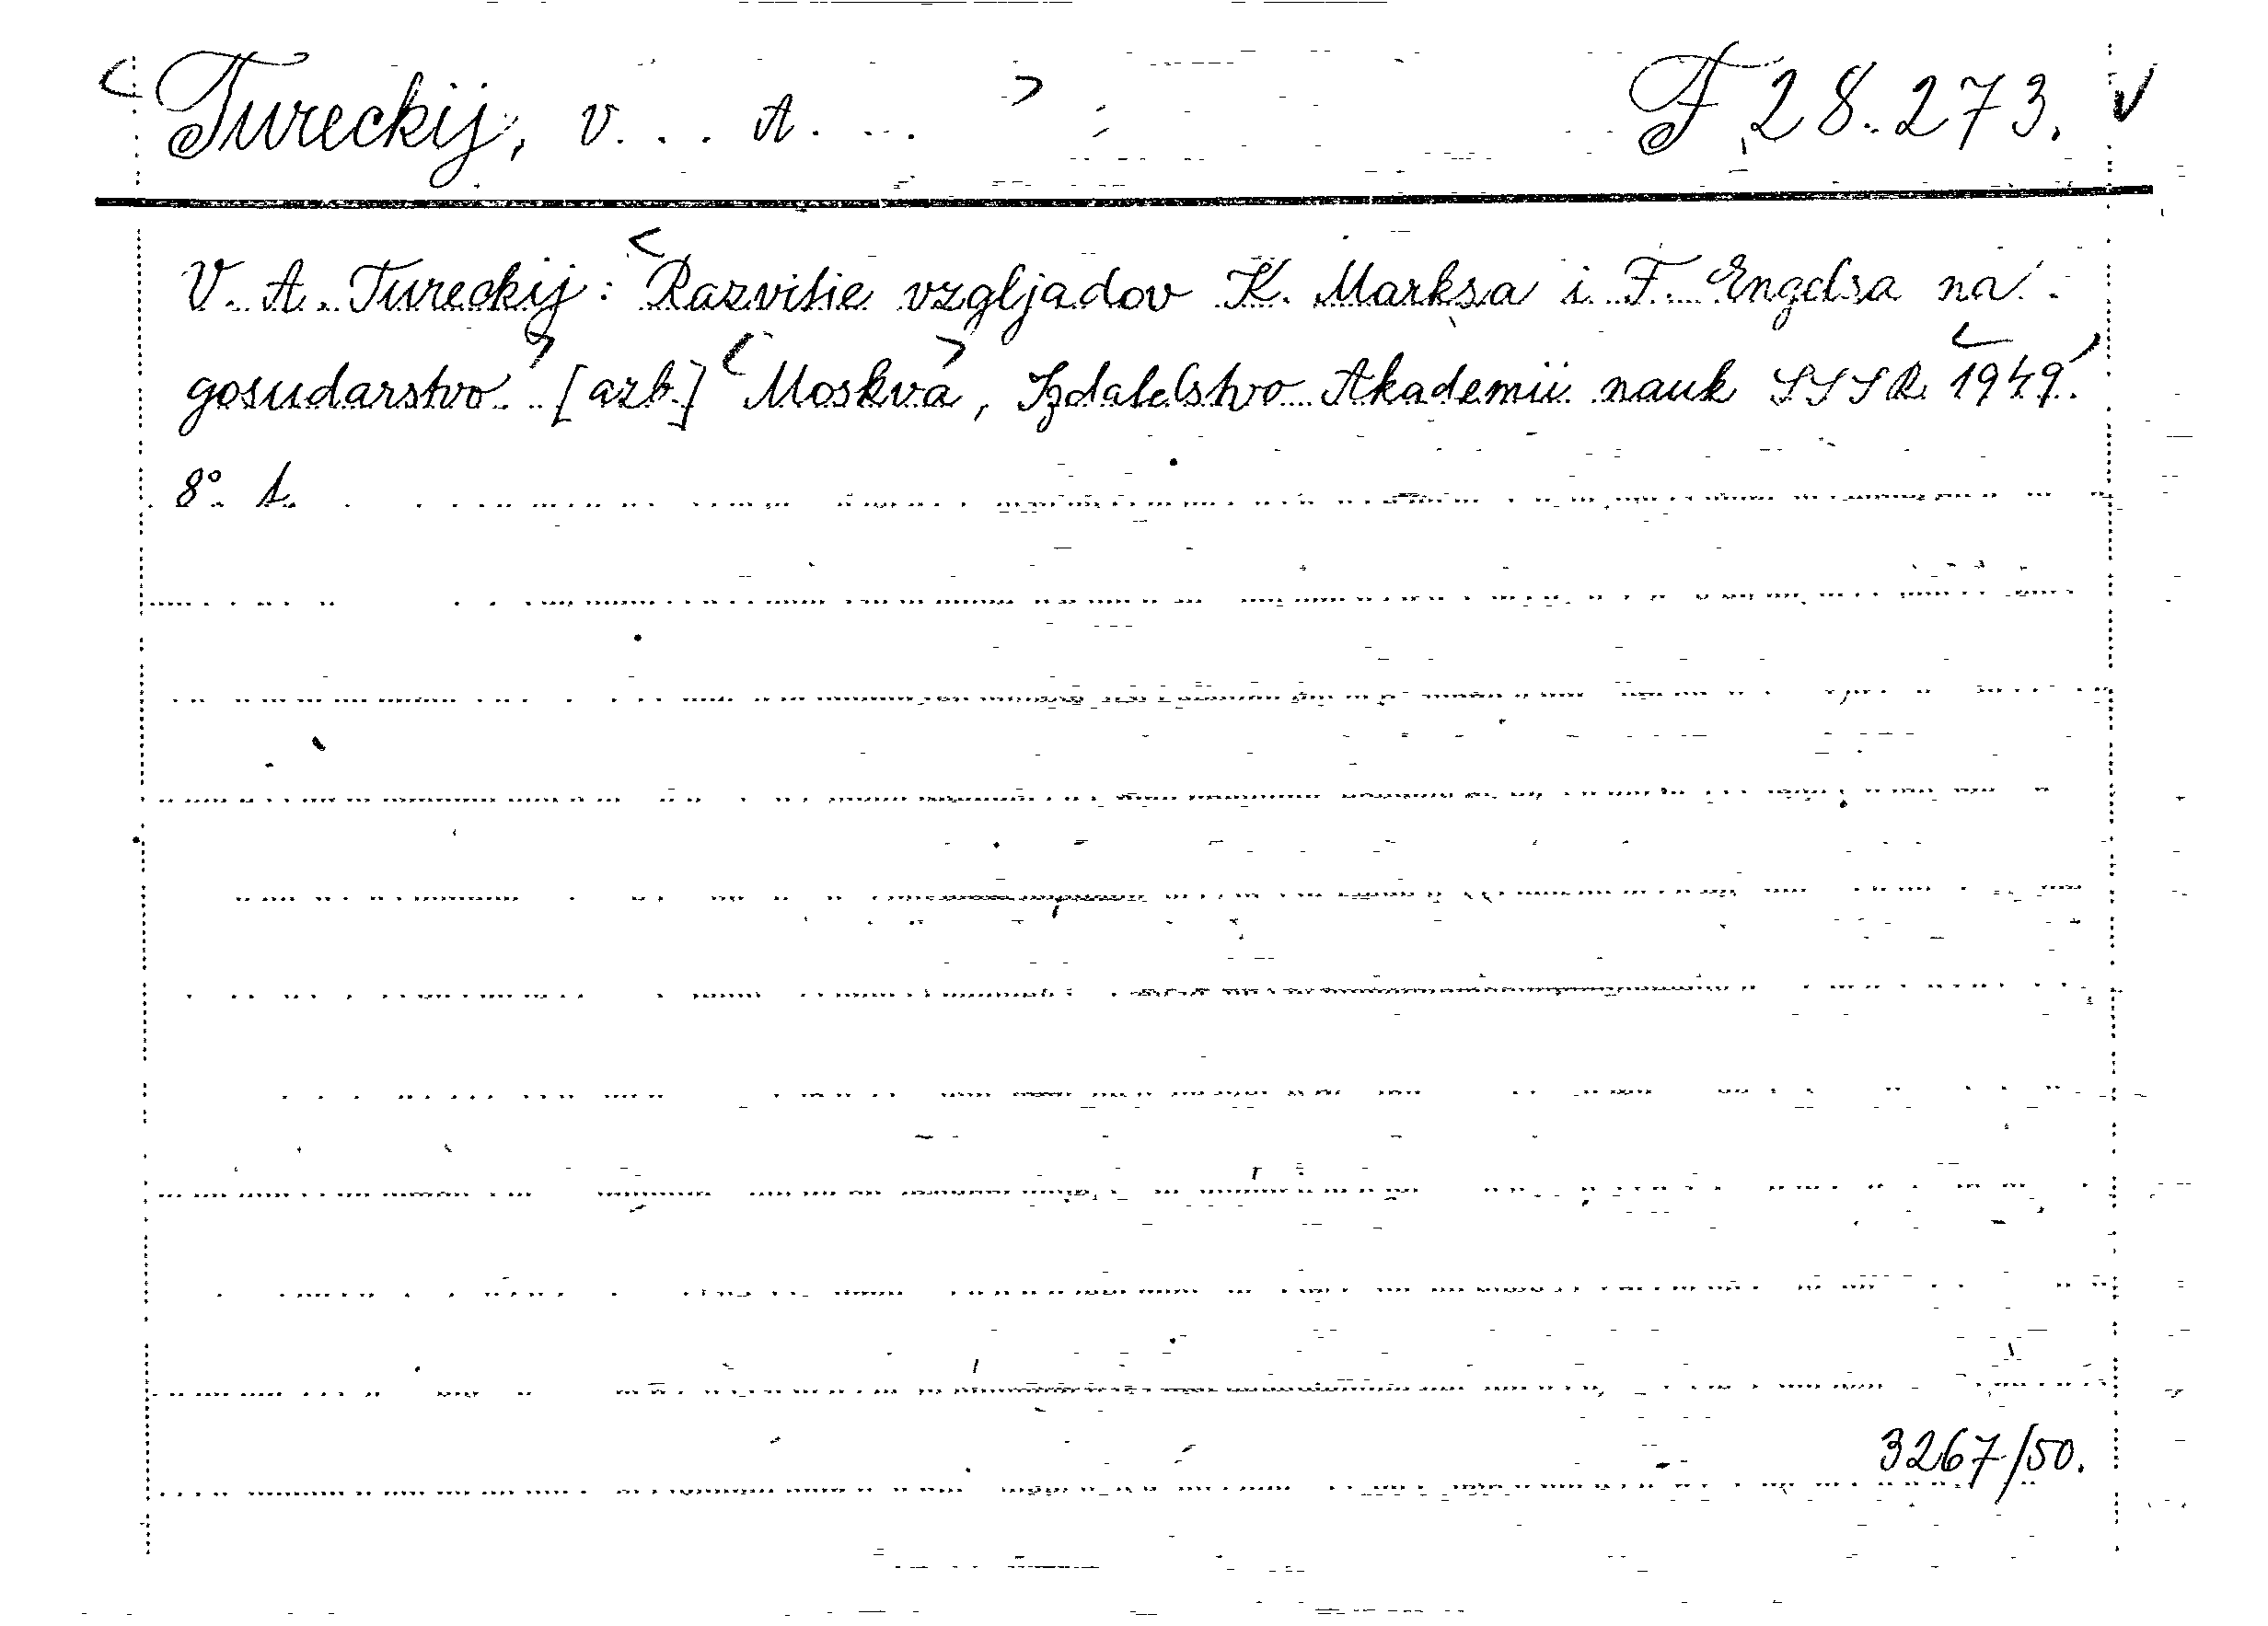 Tureckij, V... A... F 28.273. V
V. A. Tureckij: Razvitie vzgljadov K. Marksa i F. Engelsa na
gosudarstvo. [azb.] Moskva, Izdatelstvo Akademii nauk SSSR. 1949.
8°. 1.
3267/50.